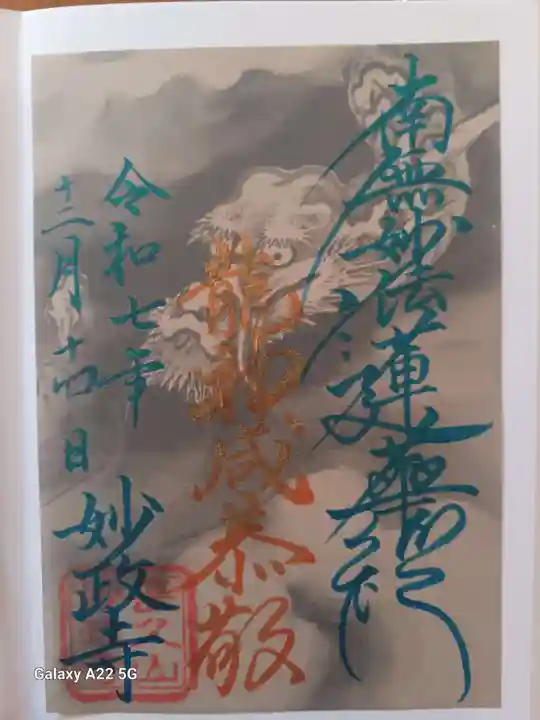 南無妙法蓮華経
龍神咸恭敬
令和七年
十二月十四日
妙政寺
Galaxy A22 5G